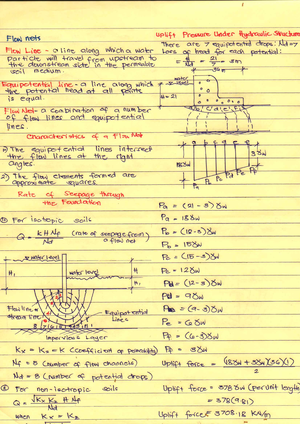 Flow nets
Flow Line - a line along which a water
particle will travel from upstream to
the downstream side in the permeable
soil medium.
Equipotential line - a line along which
the potential head at all points
is equal.
Flow Net - a combination of a number
of flow lines and equipotential
lines.
Characteristics of a Flow Net
1) The equipotential lines intersect
the flow lines at the right
angles
2) The flow elements formed are
approximate squares.
Rate of Seepage through
the Foundation
For isotropic soils
Q = KH NF / Nd (rate of seepage from a flow net)
water level
water level
H
H1
Flow line
stream line
Equipotential
Lines
8 7 6
Impervious Layer
Kx = Kz = K (coefficient of permeability)
Nf = 5 (number of flow channels)
Nd = 8 (number of potential drops)
For non-isotropic soils
Q = √Kx Kz H NF / Nd
when Kx = Kz
Uplift Pressure Under Hydraulic Structure
There are 7 equipotential drops: Nd = 7
Loss of head for each potential:
= H / Nd = 21 / 7 = 3m
36m
water
H = 21
18γw
3γw
Pa = (21 - 3)γw
Pa = 18γw
Pb = (18-3)γw
Pb = 15γw
Pc = (15-3)γw
Pc = 12γw
Pd = (12-3)γw
Pd = 9γw
Pe = (9-3)γw
Pe = 6γw
Pf = (6-3)γw
Pf = 3γw
Uplift force = (18γw + 3γw)(36)(1) / 2
Uplift force = 378γw (per unit length)
= 378(9.81)
Uplift force = 3708.18 KN/m